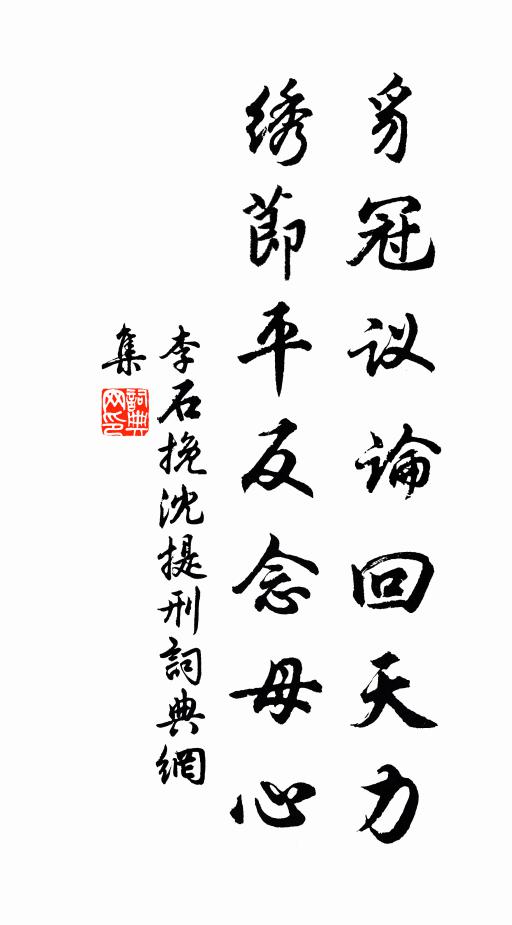 豸冠议論回天力
绣節平反念母心
李石挽沈提刑詞典網
集
詞典
网印